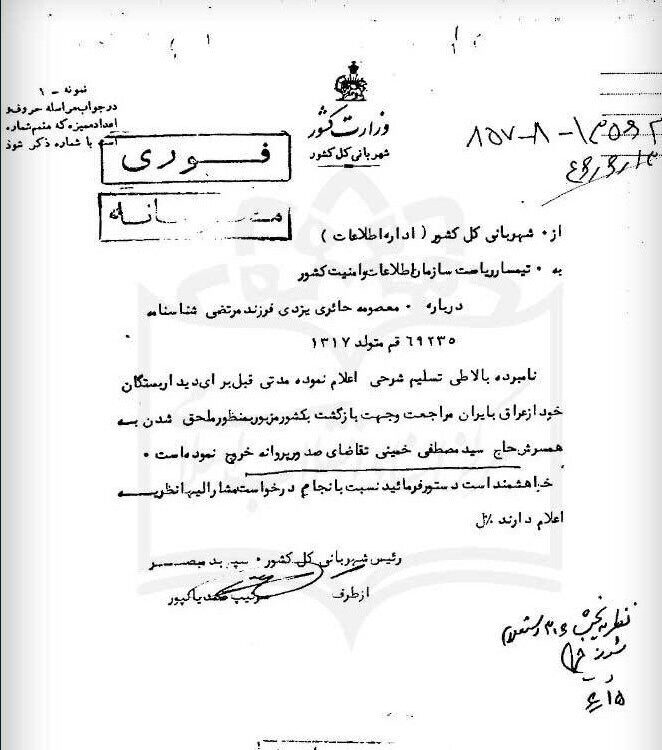 نمونه - ۱
در جواب مراسله حروف و
اعداد ممیزه که متمم شماره
است با شماره ذکر شود
وزارت کشور
شهربانی کل کشور
فوری
از • شهربانی کل کشور ( اداره اطلاعات )
به • تیمسار ریاست سازمان اطلاعات و امنیت کشور
درباره • معصومه حائری یزدی فرزند مرتضی شناسنامه
۶۹۲۳۵ قم متولد ۱۳۱۷
نامبرده بالا طی تسلیم شرحی اعلام نموده مدتی قبل برای دیدار بستگان
خود از عراق بایران مراجعت و جهت بازگشت بکشور مزبور بمنظور ملحق شدن به
همسرش حاج سید مصطفی خمینی تقاضای صدور پروانه خروج نموده است •
خواهشمند است دستور فرمائید نسبت بانجام درخواست مشارالیها نظریه
اعلام دارند
رئیس شهربانی کل کشور • سپهبد مبصر
از طرف
نظریه بخش
۱۵